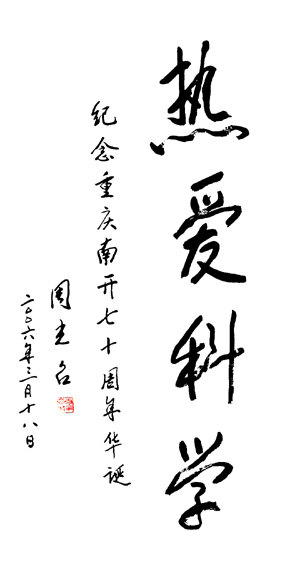 热爱科学
纪念重庆南开七十周年华诞
周光召
二〇〇六年三月十八日